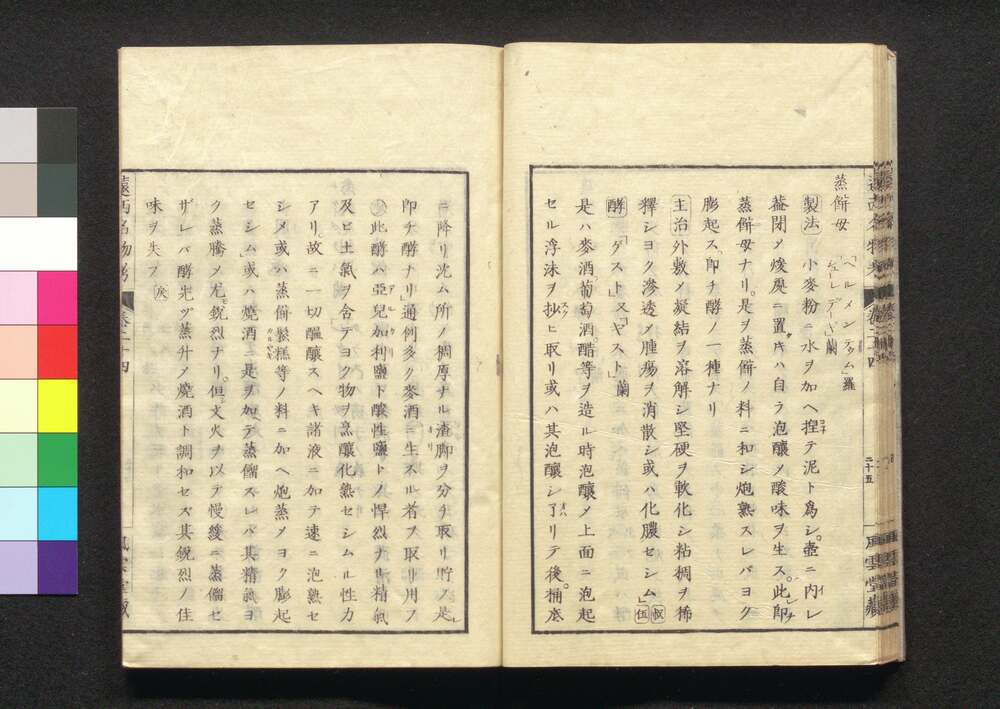 蒸餅母
「ヘルメンテゥム」羅
「シューレデーギ」蘭
製法 小麥粉ニ水ヲ加ヘ揑テ泥ト爲シ。壺ニ内レ
葢閉メ煖處ニ置キハ自ラ泡釀メ酸味ヲ生ス。此即
蒸餅母ナリ。是ヲ蒸餅ノ料ニ和シ炮熟スレバヨク
膨起ス、即チ酵ノ一種ナリ
主治 外敷メ凝結ヲ溶解シ堅硬ヲ軟化シ粘稠ヲ稀
釋シヨク滲透メ腫瘍ヲ消散シ或ハ化膿セシム
酵 「ゲスト」又「ギスト」蘭
是ハ麥酒葡萄酒醋等ヲ造ル時泡釀メ上面ニ泡起
セル浮沫ヲ抄ヒ取リ或ハ其泡釀シ了リテ後。桶底
二十五
風雲堂藏
ニ降リ沈ム所ノ稠厚ナル渣脚ヲ分チ取リ貯フ是レ
即チ酵ナリ」通例多ク麥酒ニ生スル者ヲ取リ用フ
此酵ハ亞兒加利鹽ト酸性鹽トノ悍烈ナル精氣
及ヒ土氣ヲ含テヨク物ヲ烝釀化熟セシムル性力
アリ。故ニ一切醞釀スヘキ諸液ニ加テ速ニ泡熟セ
シメ或ハ蒸餅鬆糕等ノ料ニ加ヘ炮蒸メヨク膨起
セシム」或ハ燒酒ニ是ヲ加テ蒸餾スレバ其精氣ヨ
ク蒸騰メ尤モ鋭烈ナリ。但シ文火ヲ以テ慢緩ニ蒸餾セ
ザレバ酵先ヅ蒸升メ燒酒ト調和セズ其鋭烈ノ佳
味ヲ失フ
遠西名物考